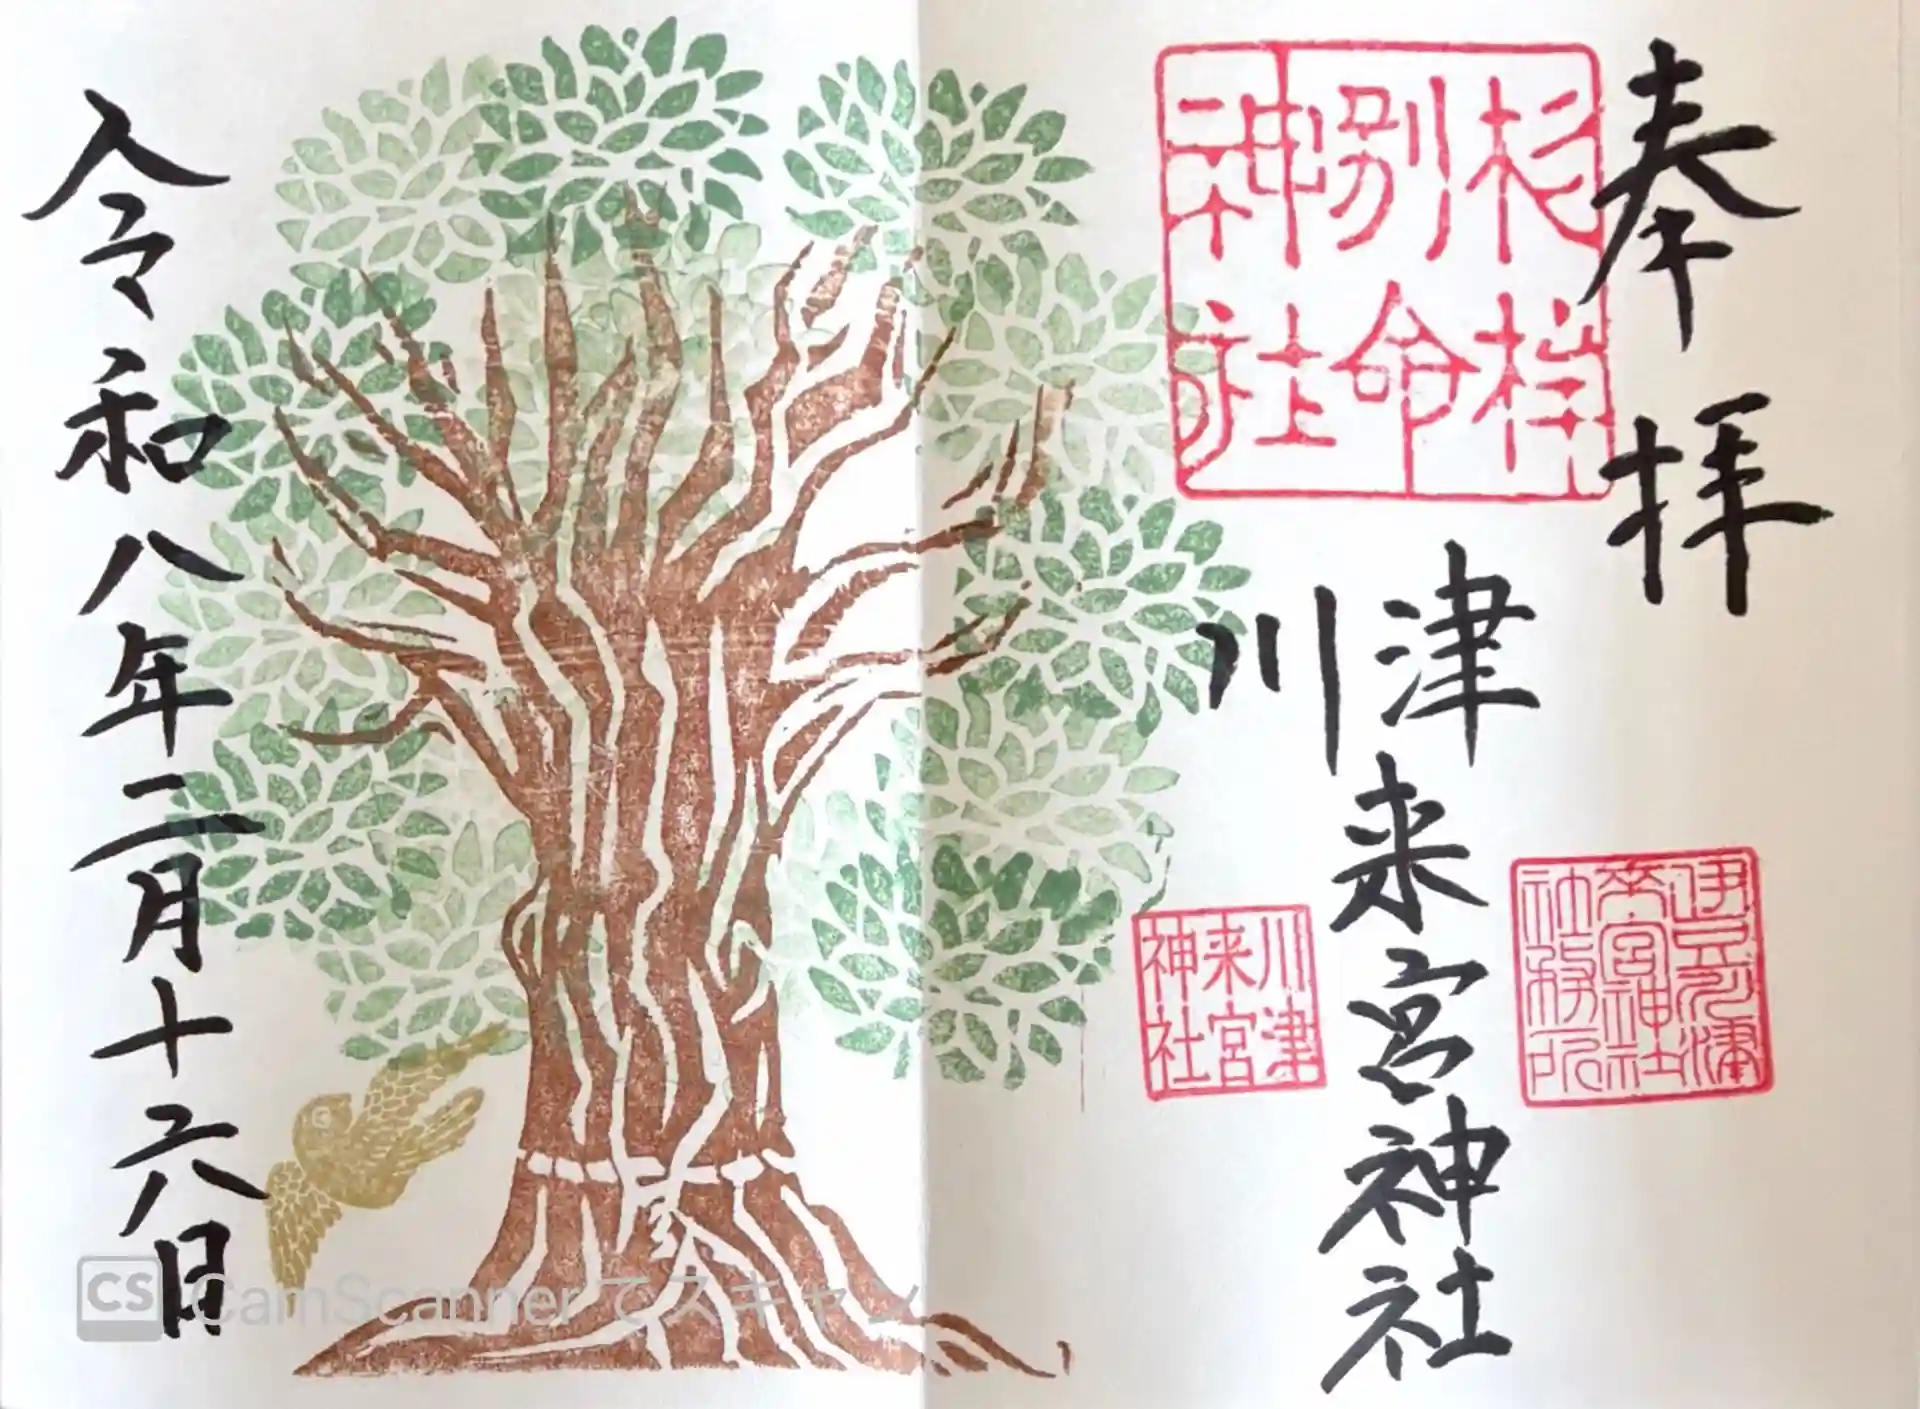 奉拝
杉桙
別命
神社
川津来宮神社
伊豆川津
来宮神社
社務所
川津
来宮
神社
令和八年二月十六日
CS CamScanner でスキャン